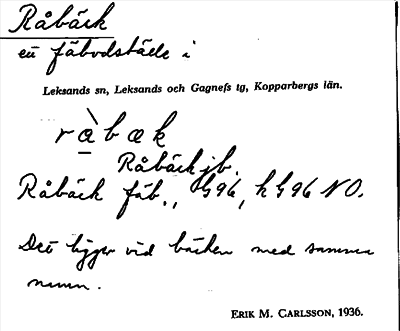 Råbäck
en fäbodställe i
Leksands sn, Leksands och Gagnefs tg, Kopparbergs län.
ràbæk
Råbäck jb.
Råbäck fäb., G96, h G96 NO.
Det ligger vid bäcken med samma
namn.
ERIK M. CARLSSON, 1936.